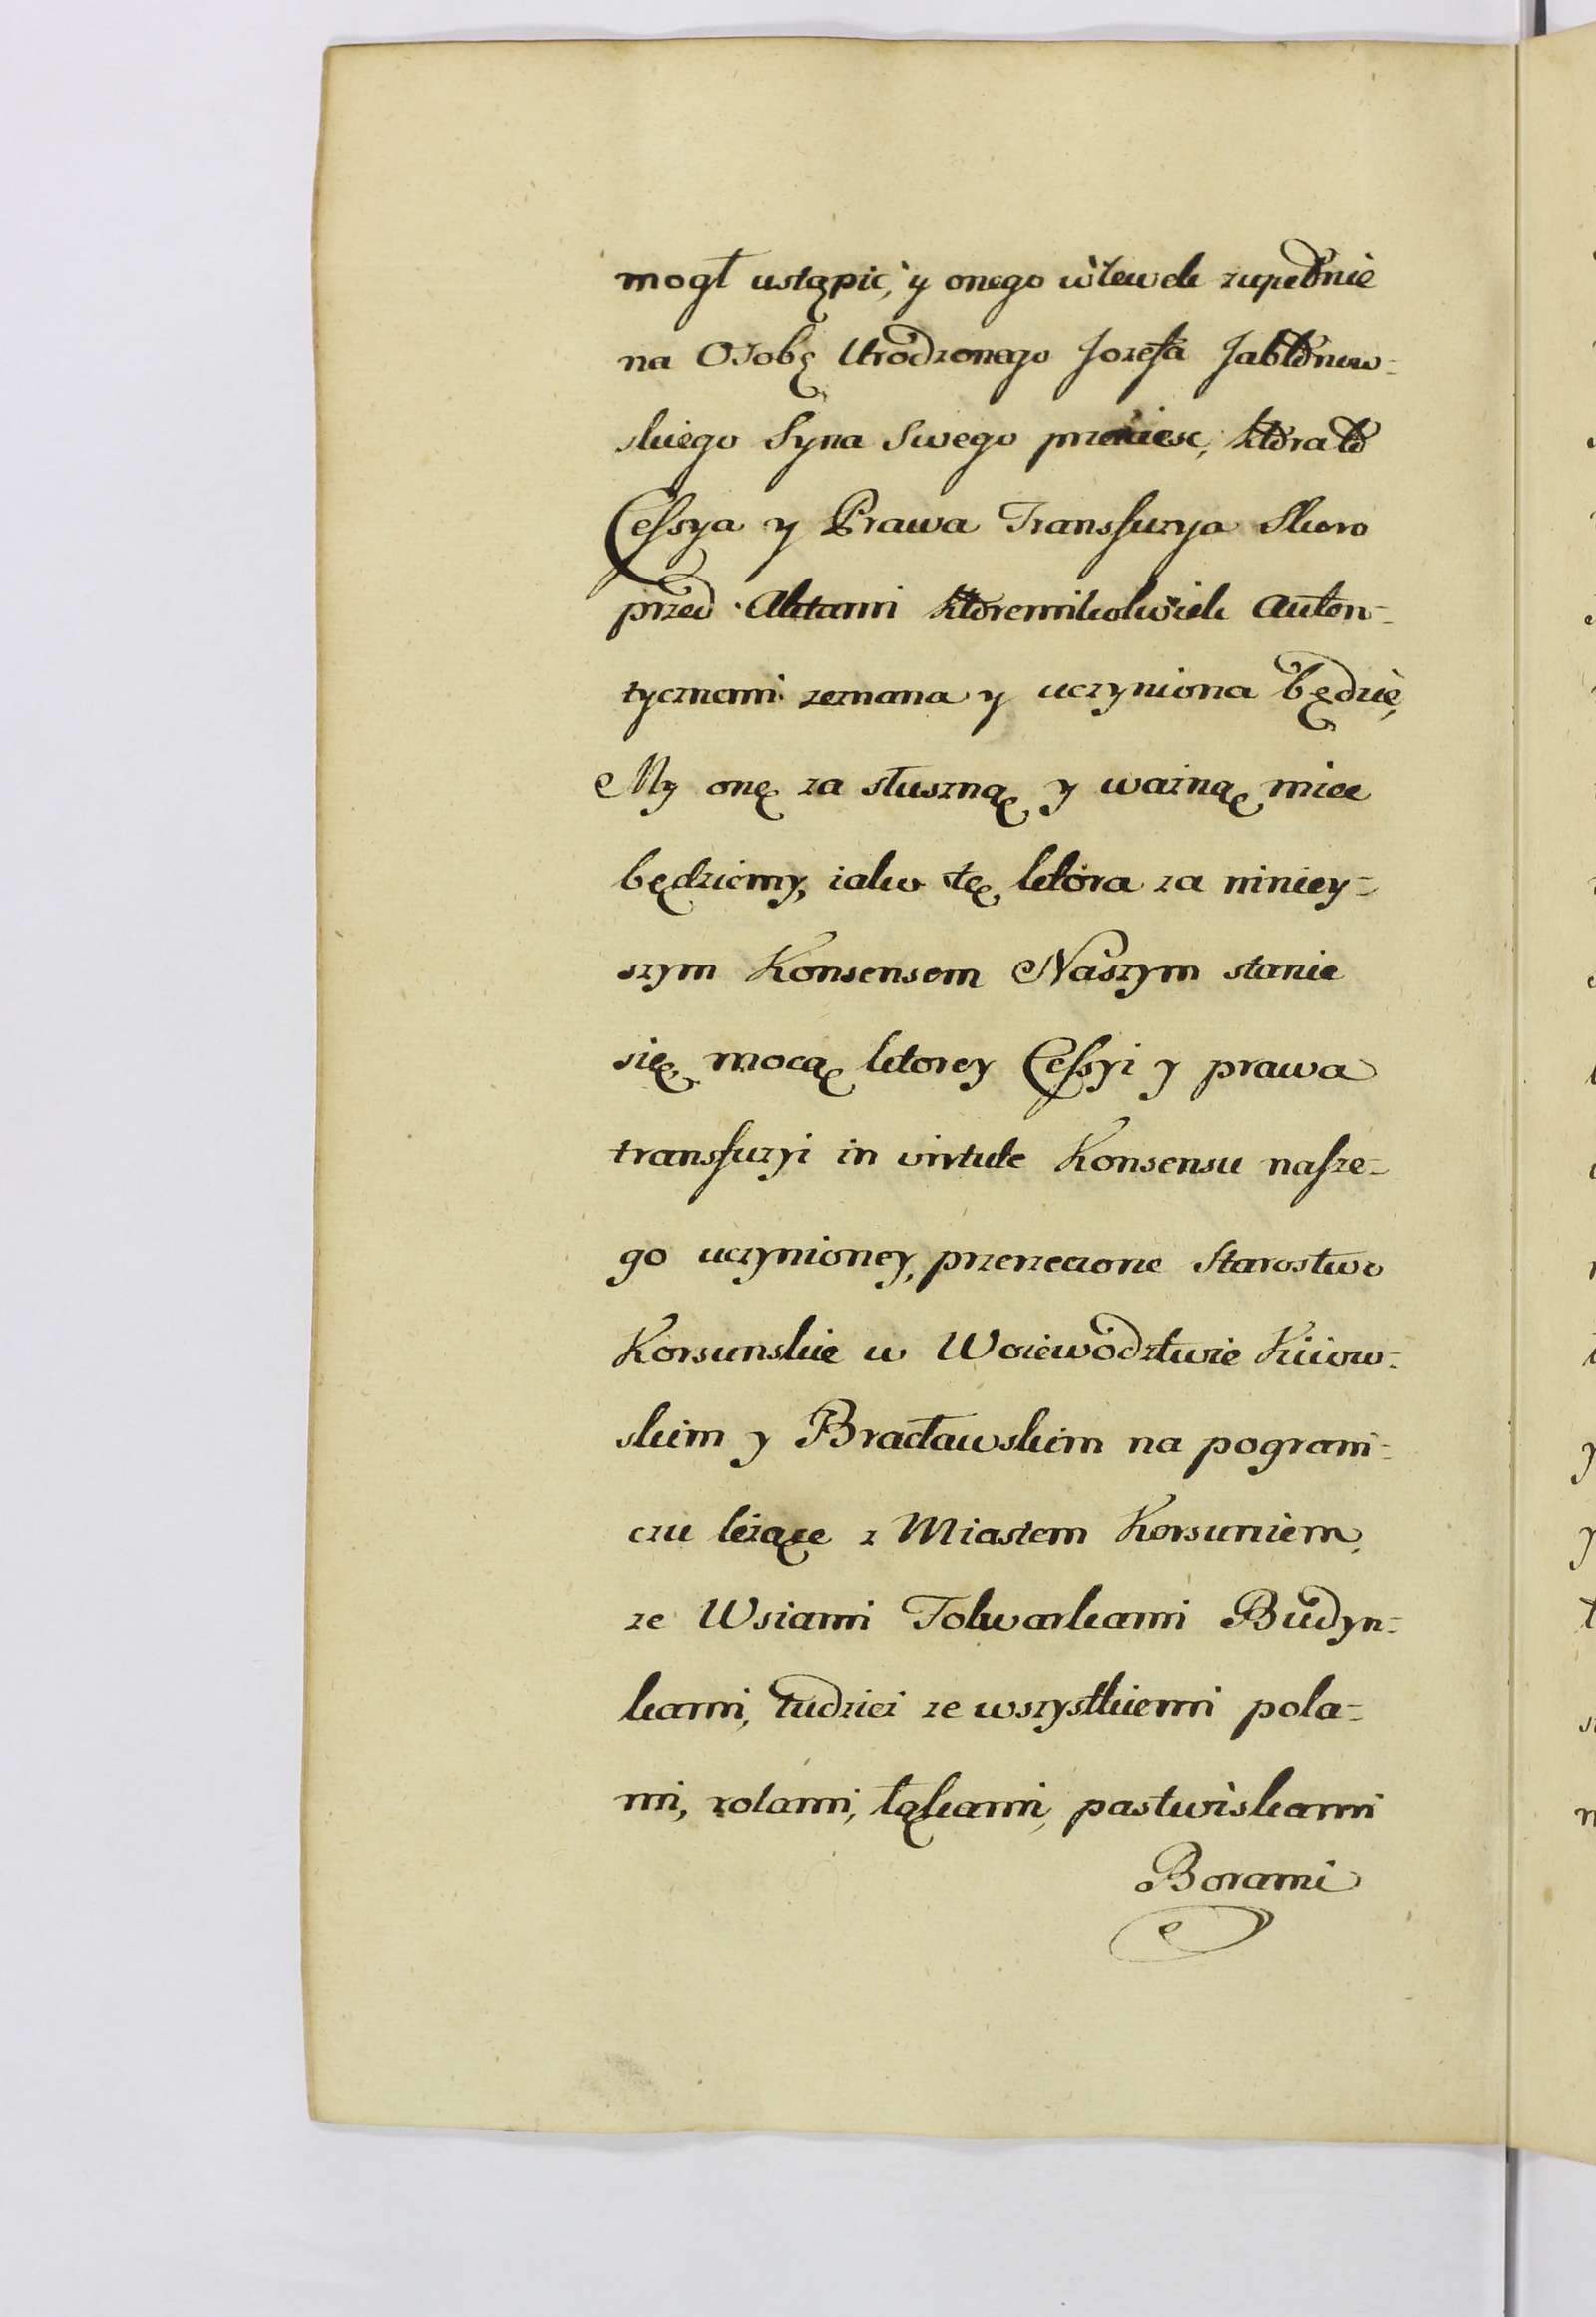 mogł ustąpić, y onego wlewek zupełnie
na Osobę Urodzonego Jozefa Jabłonow-
skiego Syna Swego przenieśc, ktora to
Cessya y Prawa Transfuzya Skoro
przed Aktami ktoremikolwiek auten-
tycznemi zeznana y uczyniona będzie,
My onę za słuszną y ważną miec
będziemy, iako tę ktora za niniey-
szym Konsensem Naszym stanie
się, mocą ktorey Cessyi y prawa
transfuzyi in virtute Konsensu nasze-
go uczynioney, przerzeczone Starostwo
Korsunskie w Woiewodztwie Kiiow-
skim y Bracławskim na pograni-
czu leżące z Miastem Korsuniem,
ze Wsiami Folwarkami Budyn-
kami, tudzież ze wszystkiemi pola-
mi, rolami, łąkami, pastwiskami
Borami